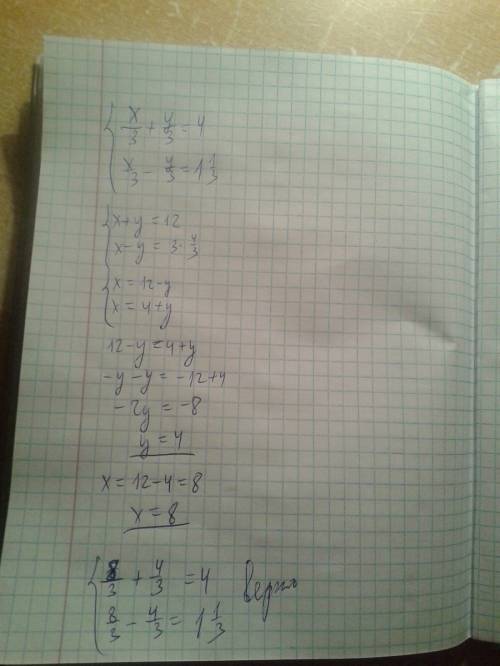 { x/3 + y/3 = 4
x/3 - y/3 = 1 1/3
{ x+y = 12
x-y = 3·4/3
{ x = 12-y
x = 4+y
12-y = 4+y
-y-y = -12+4
-2y = -8
y = 4
x = 12-4=8
x = 8
{ 8/3 + 4/3 = 4 верно
8/3 - 4/3 = 1 1/3